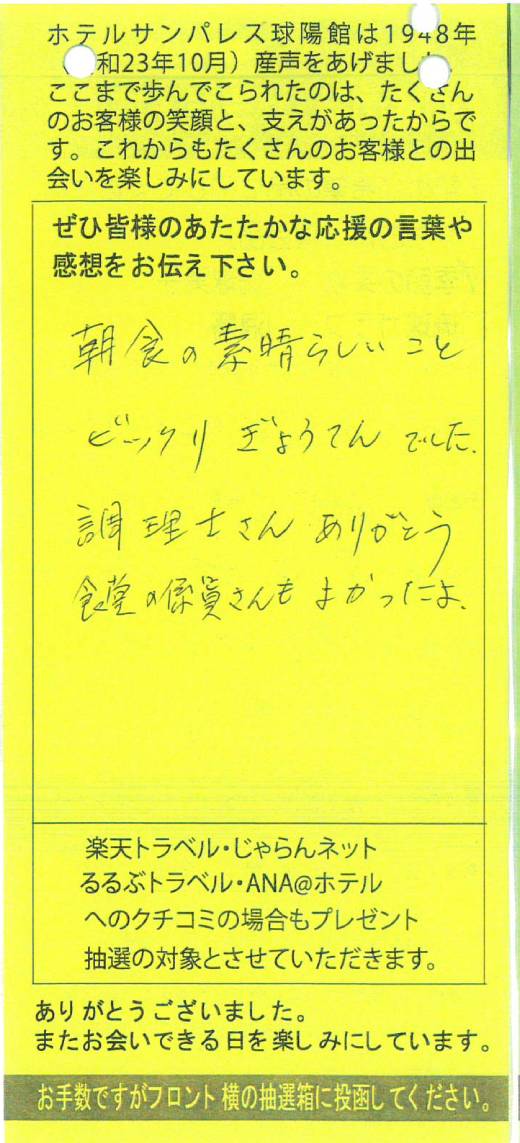 ホテルサンパレス球陽館は1948年
和23年10月）産声をあげまし
ここまで歩んでこられたのは、たくさん
のお客様の笑顔と、支えがあったからで
す。これからもたくさんのお客様との出
会いを楽しみにしています。
ぜひ皆様のあたたかな応援の言葉や
感想をお伝え下さい。
朝食の素晴らしいこと
ビックリぎょうてんでした。
調理士さんありがとう
食堂の係員さんもよかったよ。
楽天トラベル・じゃらんネット
るるぶトラベル・ANA@ホテル
へのクチコミの場合もプレゼント
抽選の対象とさせていただきます。
ありがとうございました。
またお会いできる日を楽しみにしています。
お手数ですがフロント横の抽選箱に投函してください。